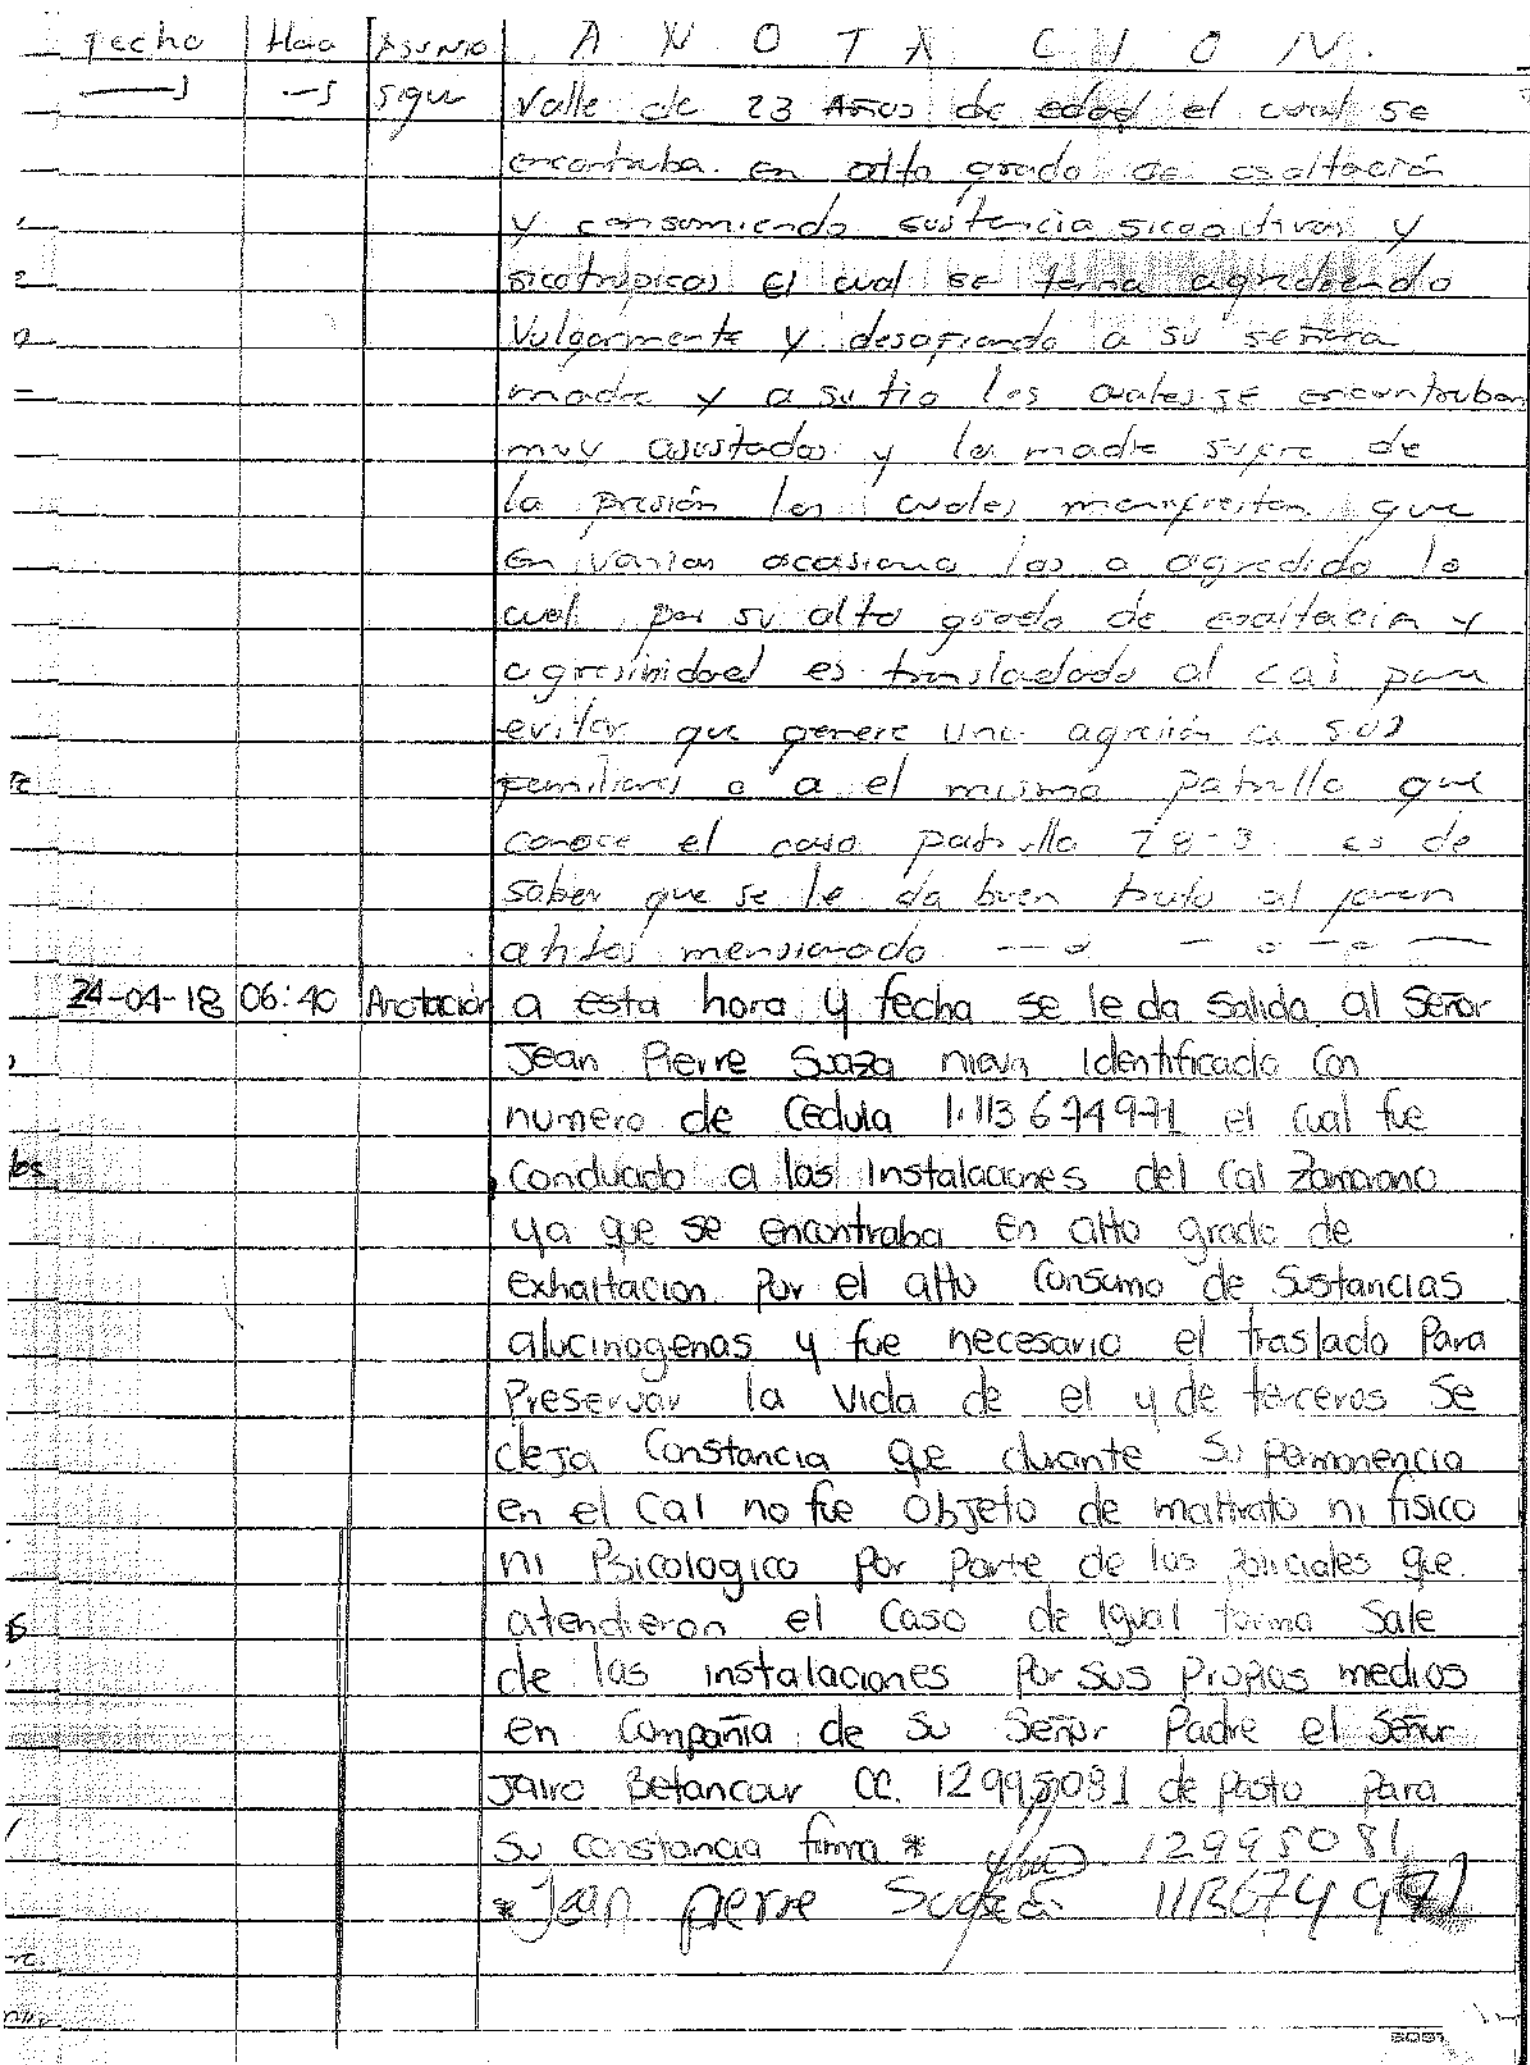 Fecha Hora Asunto A N O T A C I O N.
sigue Valle de 23 Años de edad el cual se
encontraba en alto grado de exaltación
y consumiendo sustancia sicoactivas y
sicotropicas el cual se tenia agrediendo
Vulgarmente y desafiando a su señora
madre y a su tio los cuales se encontraban
muy asustados y la madre sufre de
la presión los cuales manifiestan que
en varias ocasiones los a agredido lo
cual por su alto grado de exaltacion y
agresividad es transladado al cai para
evitar que genere una agresión a sus
familiares o a el mismo patrulla que
conoce el caso patrulla 28-3 es de
saber que se le da buen trato al joven
antes mensionado
24-04-18 06:40 Anotación a esta hora y fecha se le da salida al Señor
Jean Pierre Suaza identificado con
numero de Cedula 1.113674971 el cual fue
conducido a las instalaciones del Cai Zamorano
ya que se encontraba en alto grado de
exhaltacion por el alto consumo de Sustancias
alucinogenas y fue necesario el traslado Para
Preservar la vida de el y de terceros Se
deja Constancia que durante su permanencia
en el Cai no fue objeto de maltrato ni fisico
ni Psicologico por parte de los policiales que
atendieron el Caso de igual forma Sale
de las instalaciones por sus propios medios
en compañia de su Señor Padre el Señor
Jairo Betancour CC. 12995081 de pasto para
su constancia firma * 12995081
* Jean pierre Suaza 1113674971